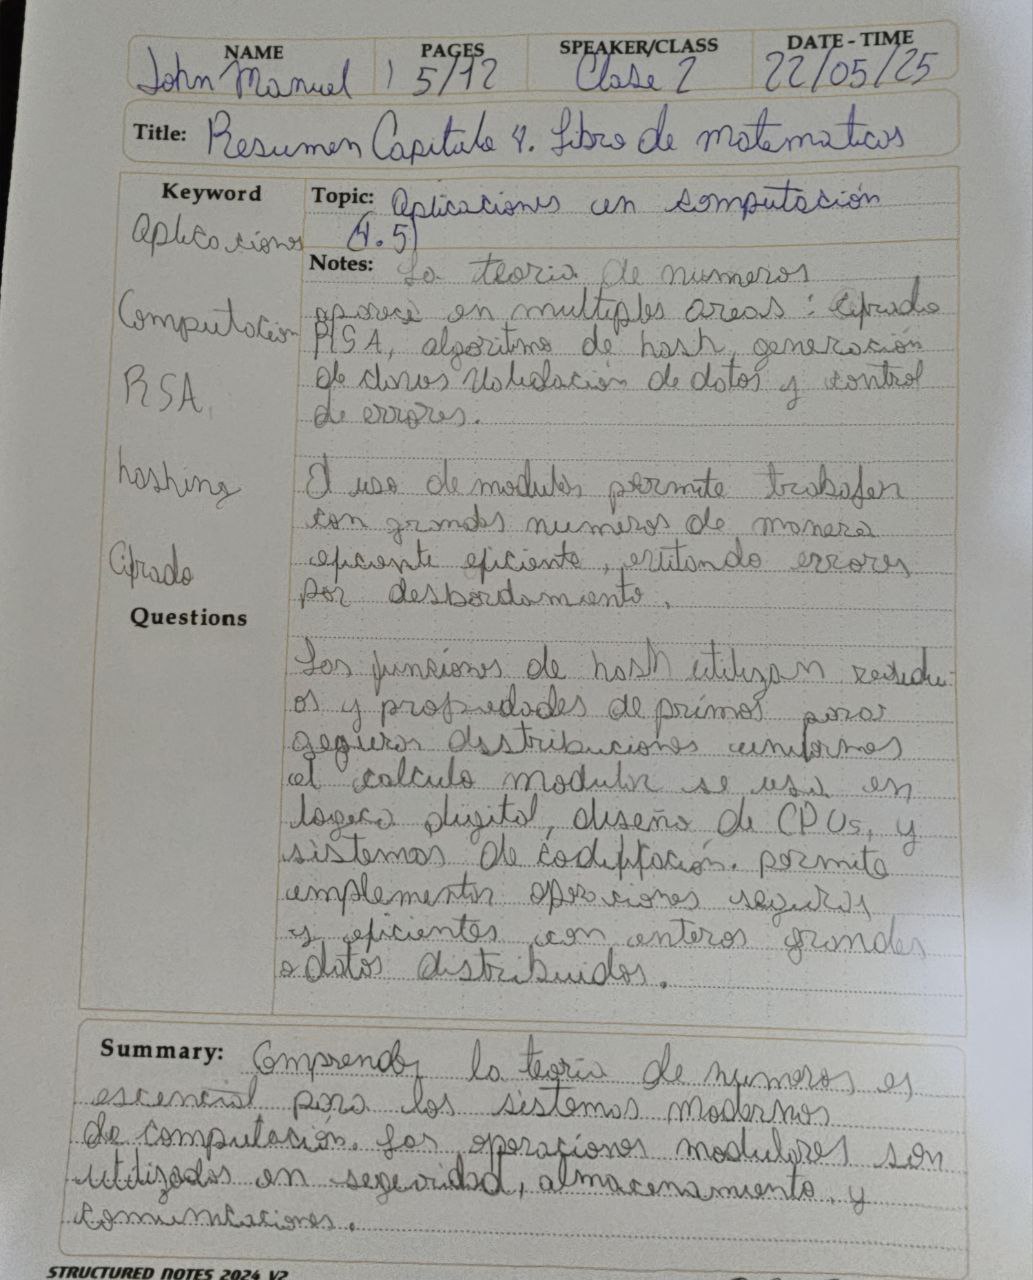 NAME PAGES SPEAKER/CLASS DATE - TIME
John Manuel 5/12 Clase 2 22/05/25
Title: Resumen Capitulo 4. Libro de matematicas
Keyword
Aplicaciones
Computación
RSA
hashing
Cifrado
Questions
Topic: Aplicaciones en computación
(4.5)
Notes: La teoria de numeros
aparece en multiples areas: Cifrado
RSA, algoritmo de hash, generación
de claves Validación de datos y control
de errores.
El uso de modulos permite trabajar
con grandes numeros de manera
eficiente eficiente, evitando errores
por desbordamiento.
Las funciones de hash utilizan residu-
os y propiedades de primos para
distribuciones uniformes
el calculo modular se usa en
logica digital, diseño de CPUs, y
sistemas de codificación. permite
implementar operaciones seguras
y eficientes con enteros grandes
o datos distribuidos.
Summary: Comprender la teoria de numeros es
escencial para los sistemas modernos
de computación. Las operaciones modulares son
utilizadas en seguridad, almacenamiento y
comunicaciones.
STRUCTURED NOTES 2024 V2